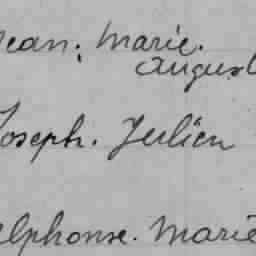 Jean. Marie.
August
Joseph. Julien
Alphonse. Marie